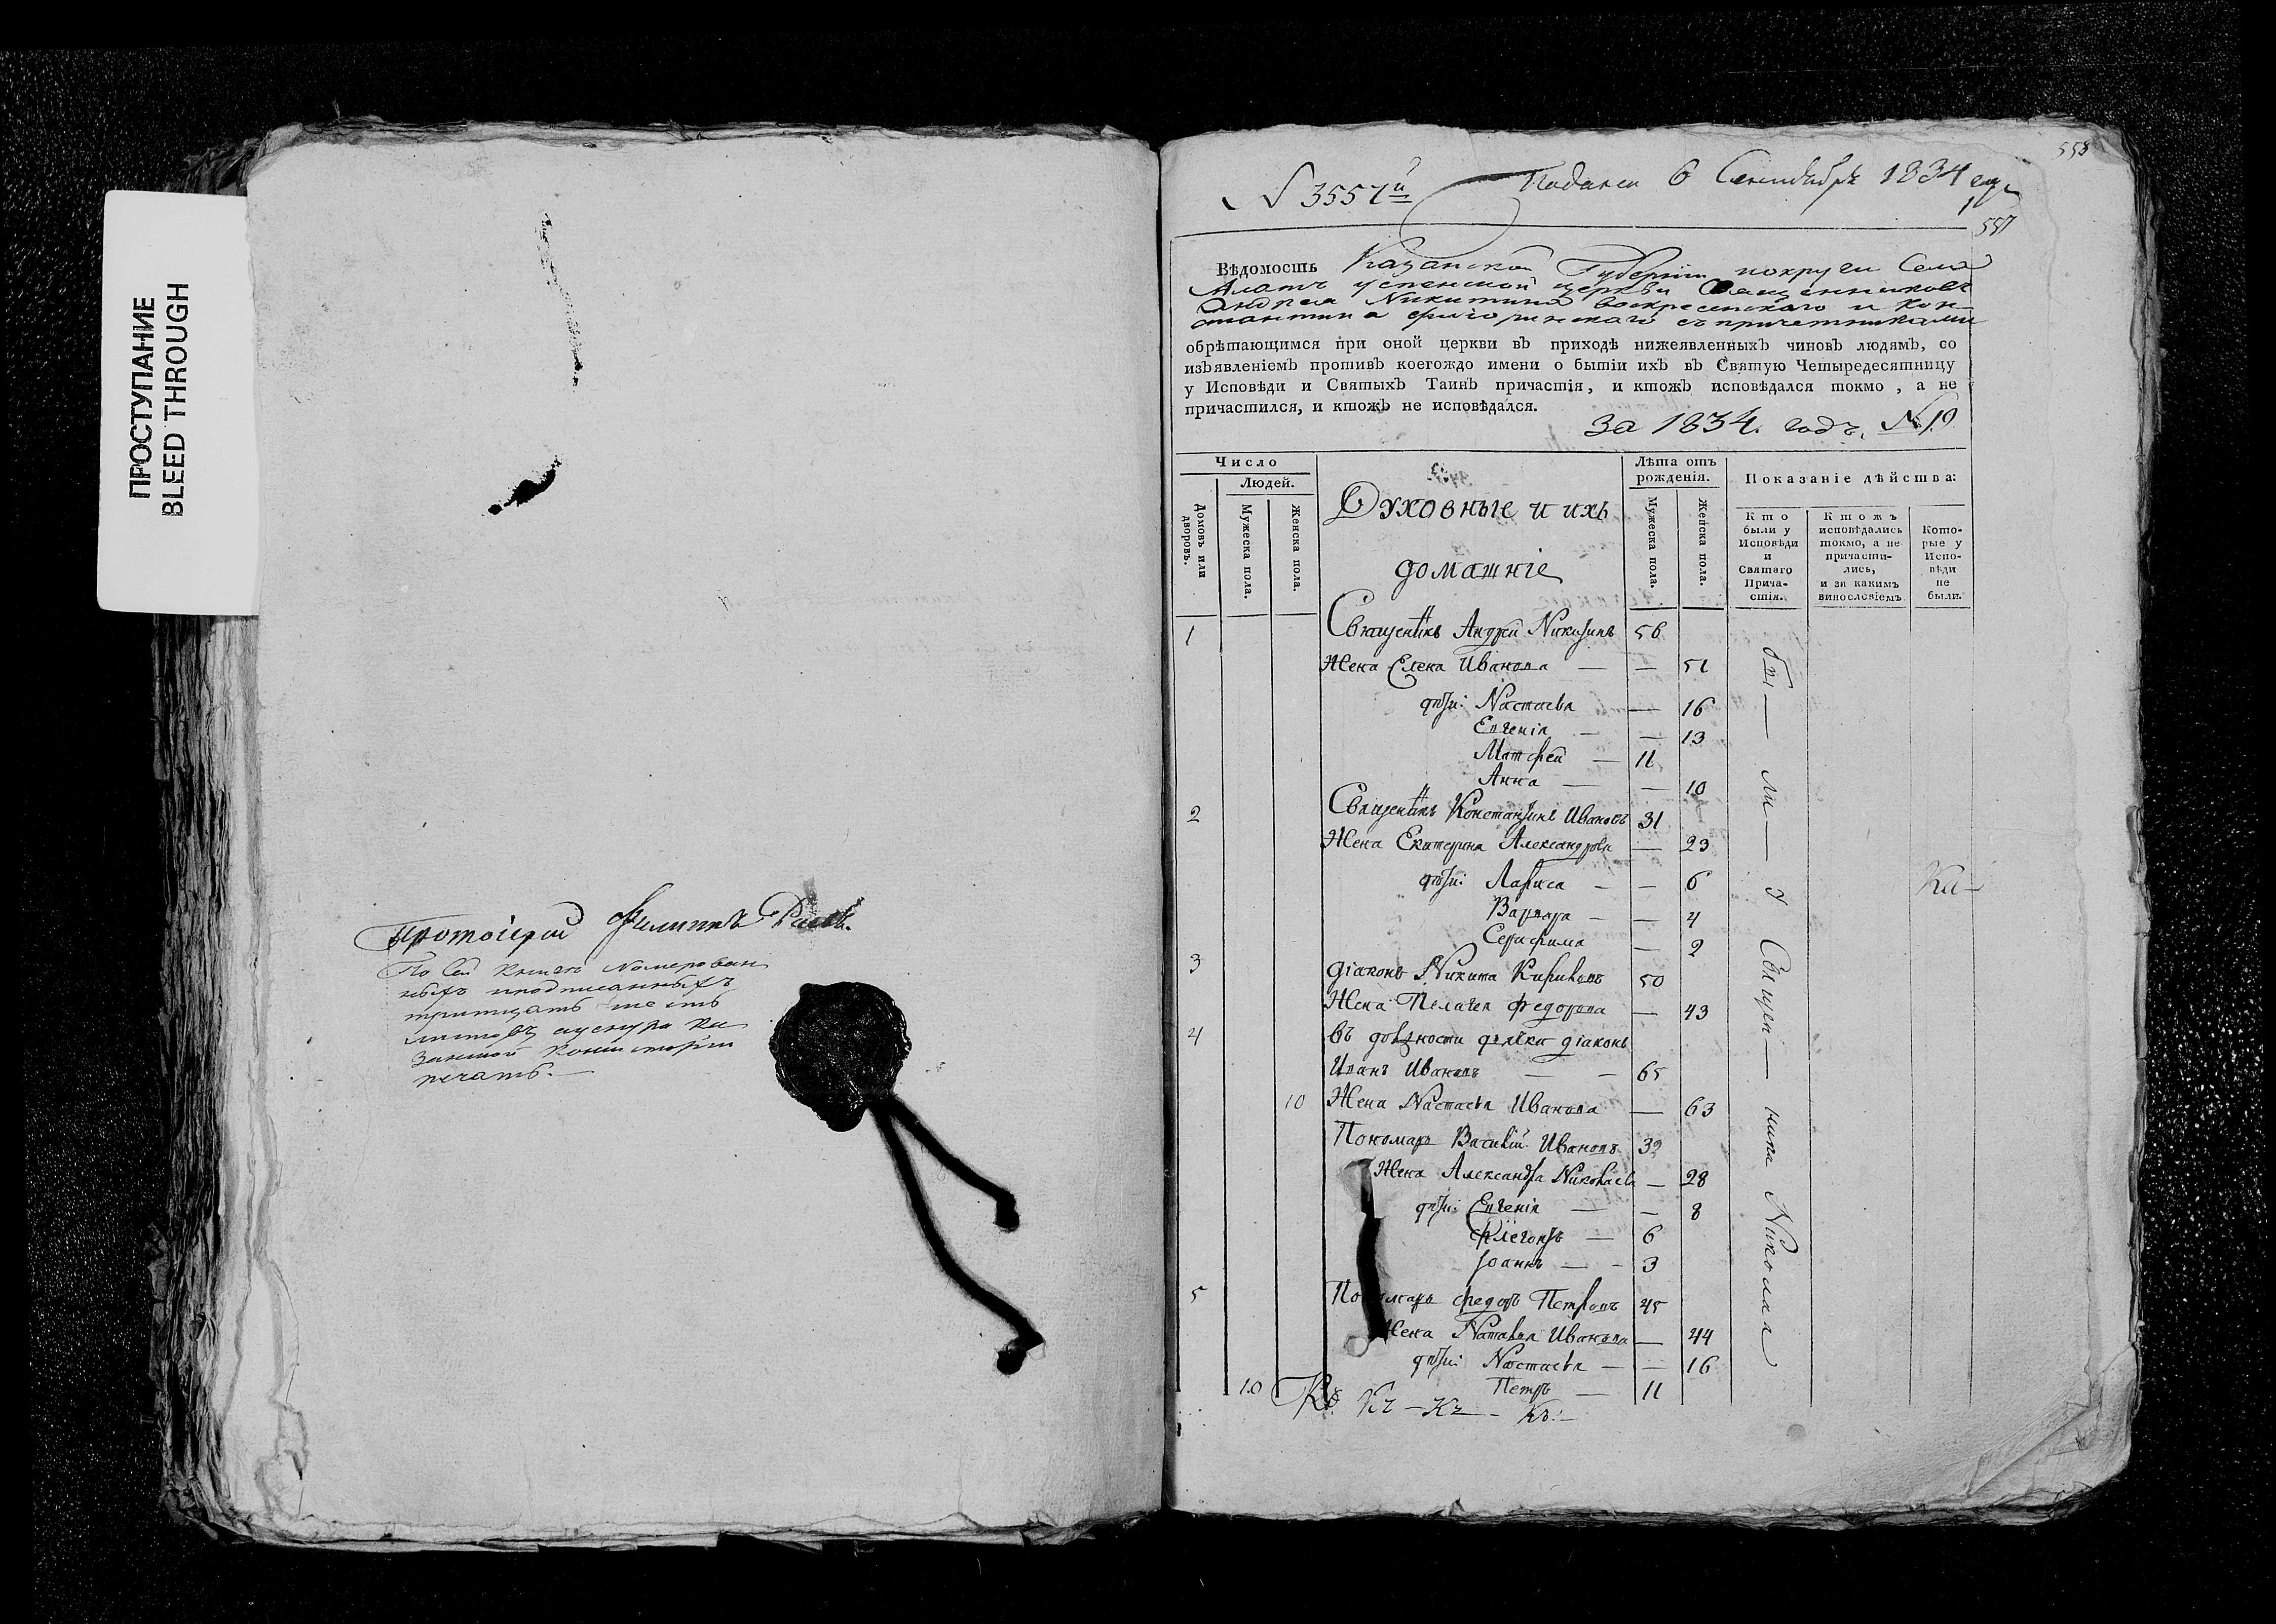 ПРОСТУПАНИЕ
BLEED THROUGH
Протоіерей Филиппъ
По сей книгѣ номерован
ныхъ и подписанныхъ
тритцать шесть
листовъ
занской Консисторіи
печать.
558
N 3557й Подана 6 Сентября 1834 года
1
557
Вѣдомость Казанской Губерніи и округи Села
Алатъ успенской церкви Священниковъ
Андрея Никитина воскресенскаго и Кон-
стантина съ причетниками
обрѣтающимся при оной церкви въ приходѣ нижеявленныхъ чиновъ людямъ, со
изъявленіемъ противъ коегождо имени о бытіи ихъ въ Святую Четыредесятницу
у Исповѣди и Святыхъ Таинъ причастія, и ктожъ исповѣдался токмо, а не
причастился, и ктожъ не исповѣдался.
За 1834. годъ. №19
Число
Людей.
Домовъ или дворовъ.
Мужеска пола.
Женска пола.
Духовные и ихъ
домашніе
Лѣта отъ
рожденія.
Мужеска пола.
Женска пола.
Показаніе дѣйства:
Кто
были у
Исповѣди
и
Святаго
Прича-
стія.
Ктожъ
исповѣдались
токмо, а не
причасти-
лись,
и за какимъ
винословіемъ
Кото-
рые у
Испо-
вѣди
не
были.
1 Священникъ Андрей Никитинъ 56
Жена Елена Иванова — — 51
дѣти: Настасья — 16
Евгенія — — 13
Матфей — 11
Анна — — 10
2 Священникъ Константинъ Ивановъ 31
Жена Екатерина Александрова — 23
дѣти: Лариса — — 6
Варвара — — 4
Серафима — 2
3 діаконъ Никита Кириловъ 50
Жена Пелагея Федорова — 43
4 въ должности дьячка діаконъ
Иванъ Ивановъ — — 65
10 Жена Настасья Иванова — 63
Пономарь Василій Ивановъ 32
Жена Александра Николаева — 28
дѣти: Евгенія — — 8
Флегонтъ — 6
Іоаннъ — - 3
5 Пономарь Федоръ Петровъ 45
Жена Наталья Иванова — 44
дѣти: Настасья — — 16
10 Петръ — 11
бы — ли — у Священ — ника Николая
Ка-
Къ Къ - Къ - Къ. -